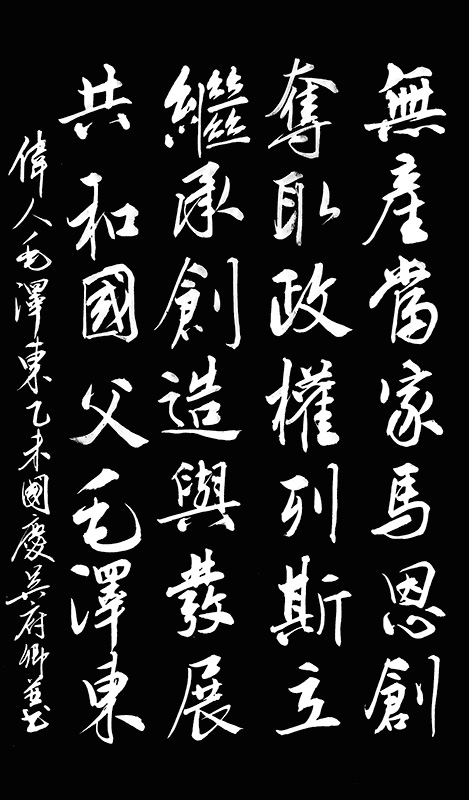 無產當家馬恩創
奪取政權列斯立
繼承創造與發展
共和國父毛澤東
偉人毛澤東乙未國慶吳府卿並书